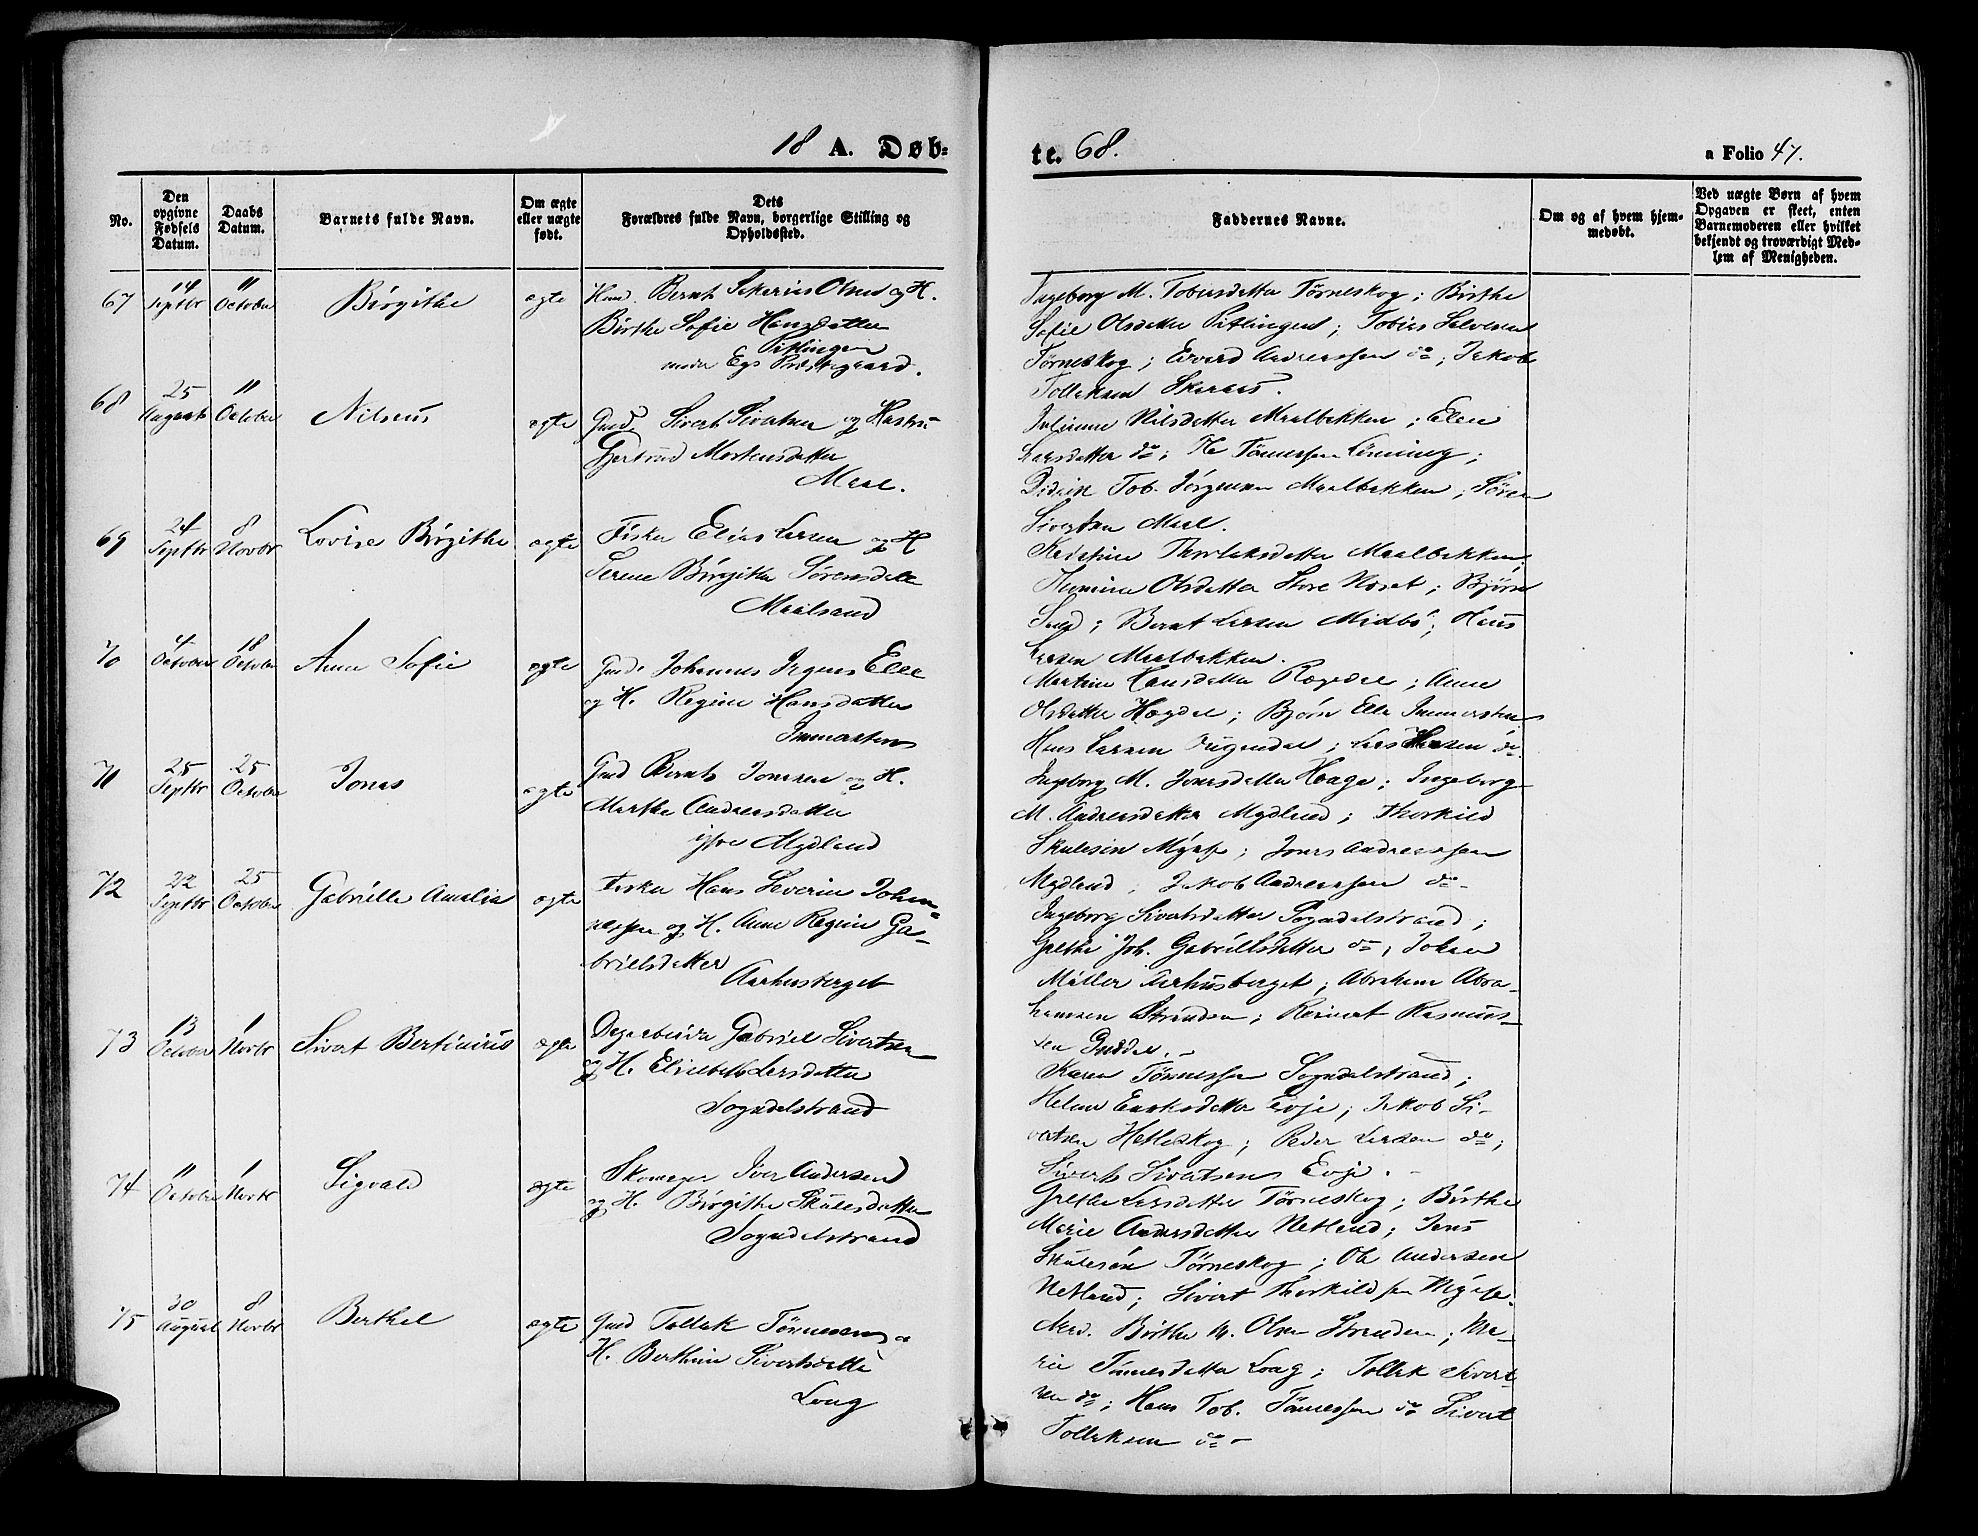 18 A. Døb-
te. 68.
a Folio 47.
No.
Den opgivne Fødsels Datum.
Daabs Datum.
Barnets fulde Navn.
Om ægte eller uægte født.
Dets Forældres fulde Navn, borgerlige Stilling og Opholdssted.
Faddernes Navne.
Om og af hvem hjemmedøbt.
Ved uægte Børn af hvem Opgaven er skeet, enten Barnemoderen eller hvilket bekjendt og troværdigt Medlem af Menigheden.
67 14 Septbr 11 October Birgithe ægte Bernt Olsen og H.
Birthe Sofie Hansdatter
Pitlingen
under Egs Præstegaard.
Ingeborg M. Tobiasdatter Tørneskog; Birthe
Sofie Olsdatter Pitlingen; Tobias
Tørneskog; Andreassen do; Jakob
Tolleksen
68 25 August 11 October Nilsus ægte Gmd. Sivert Sivertsen og Hustru
Gjertrud Mortensdatter
Maal.
Juliane Nilsdatter Maalbakken; Elen
Larsdatter do; Tønnessen Lønning;
Didrik Tob. Jørgensen Maalbakken; Søren
Sivertsen Maal.
69 24 Septbr 8 Novbr Lovise Birgithe ægte Fisker Elias Larsen og H
Serene Birgithe Sørensdatter
Maalsand
Thorlaksdatter Maalbakken;
Olsdatter Store; Bjørn
Bernt Larsen Midbø; Hans
Larsen Maalbakken.
70 4 October 18 October Anne Sofie ægte Gmd. Johannes Elle
og H. Regine Hansdatter
Immerstens
Martine Hansdatter; Anne
Olsdatter; Bjørn Elle Immersten
Hans Larsen; Lars Hansen do.
71 25 Septbr 25 October Jonas ægte Gmd Bernt Jonsen og H.
Marthe Andreasdatter
øfre Mydland
Ingeborg M. Jonasdatter Haaga; Ingeborg
M. Andreasdatter Mydland; Thorkild
Skulesen; Jonas Andreassen
Mydland; Jakob Andreassen do-
72 22 Septbr 25 October Gabrielle Amalia ægte Fisker Hans Severin Johan-
nessen og H. Anne Regine Ga-
brielsdatter
Aarhusberget
Ingeborg Sivertsdatter Sogndalstrand;
Grethe Joh. Gabrielsdatter do; Johan
Møller Aarhusberget; Abraham Abra-
hamsen Stranden; Reinert Rasmus-
sen
73 13 October 1 Novbr Sivert Bertinius ægte Dagarbeider Gabriel Sivertsen
og H. Elisabeth Larsdatter
Sogndalstrand
Karen Tønnessen Sogndalstrand;
Helene Evje; Jakob Si-
vertsen Hetleskog; Peder Larsen do;
Sivert Sivertsens Evje.
74 11 October 1 Novbr Sigvald ægte Skomager Iver Andersen
og H. Birgithe Skulesdatter
Sogndalstrand
Grethe Larsdatter Tørneskog; Birthe
Marie Andersdatter Netland; Jens
Skulesøn Tørneskog; Ole Andersen
Netland; Sivert Thorkildsen
75 30 August 8 Novbr Berthel ægte Gmd Tollak Tønnesen og
H. Berthine Sivertsdatter
Long
Birthe M. Olsen Stranden; Ma-
rie Tønnesdatter Long; Tollak Sivert-
sen do; Hans Tob. Tønnessen do Sivert
Tollaksen do-